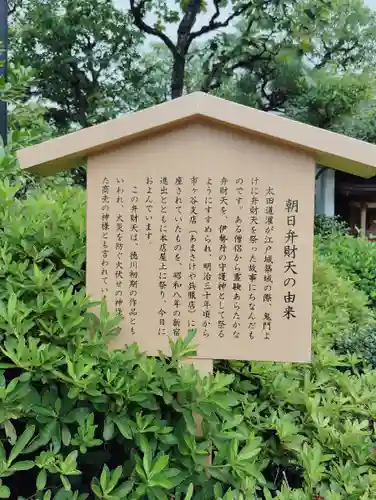 朝日弁財天の由来
太田道灌が江戸城築城の際、鬼門よ
けに弁財天を祭った故事にちなんだも
のです。ある僧侶から霊験あらたかな
弁財天を、伊勢丹の守護神として祭る
ようにすすめられ、明治三十年頃から
市ヶ谷支店(あまさけや呉服店)に
座されていたものを、昭和八年の新宿
進出とともに本店屋上に祭り、今日に
およんでいます。
この弁財天は、徳川初期の作品とも
いわれ、火災を防ぐ火伏せの神様、
た商売の神様とも言われてい